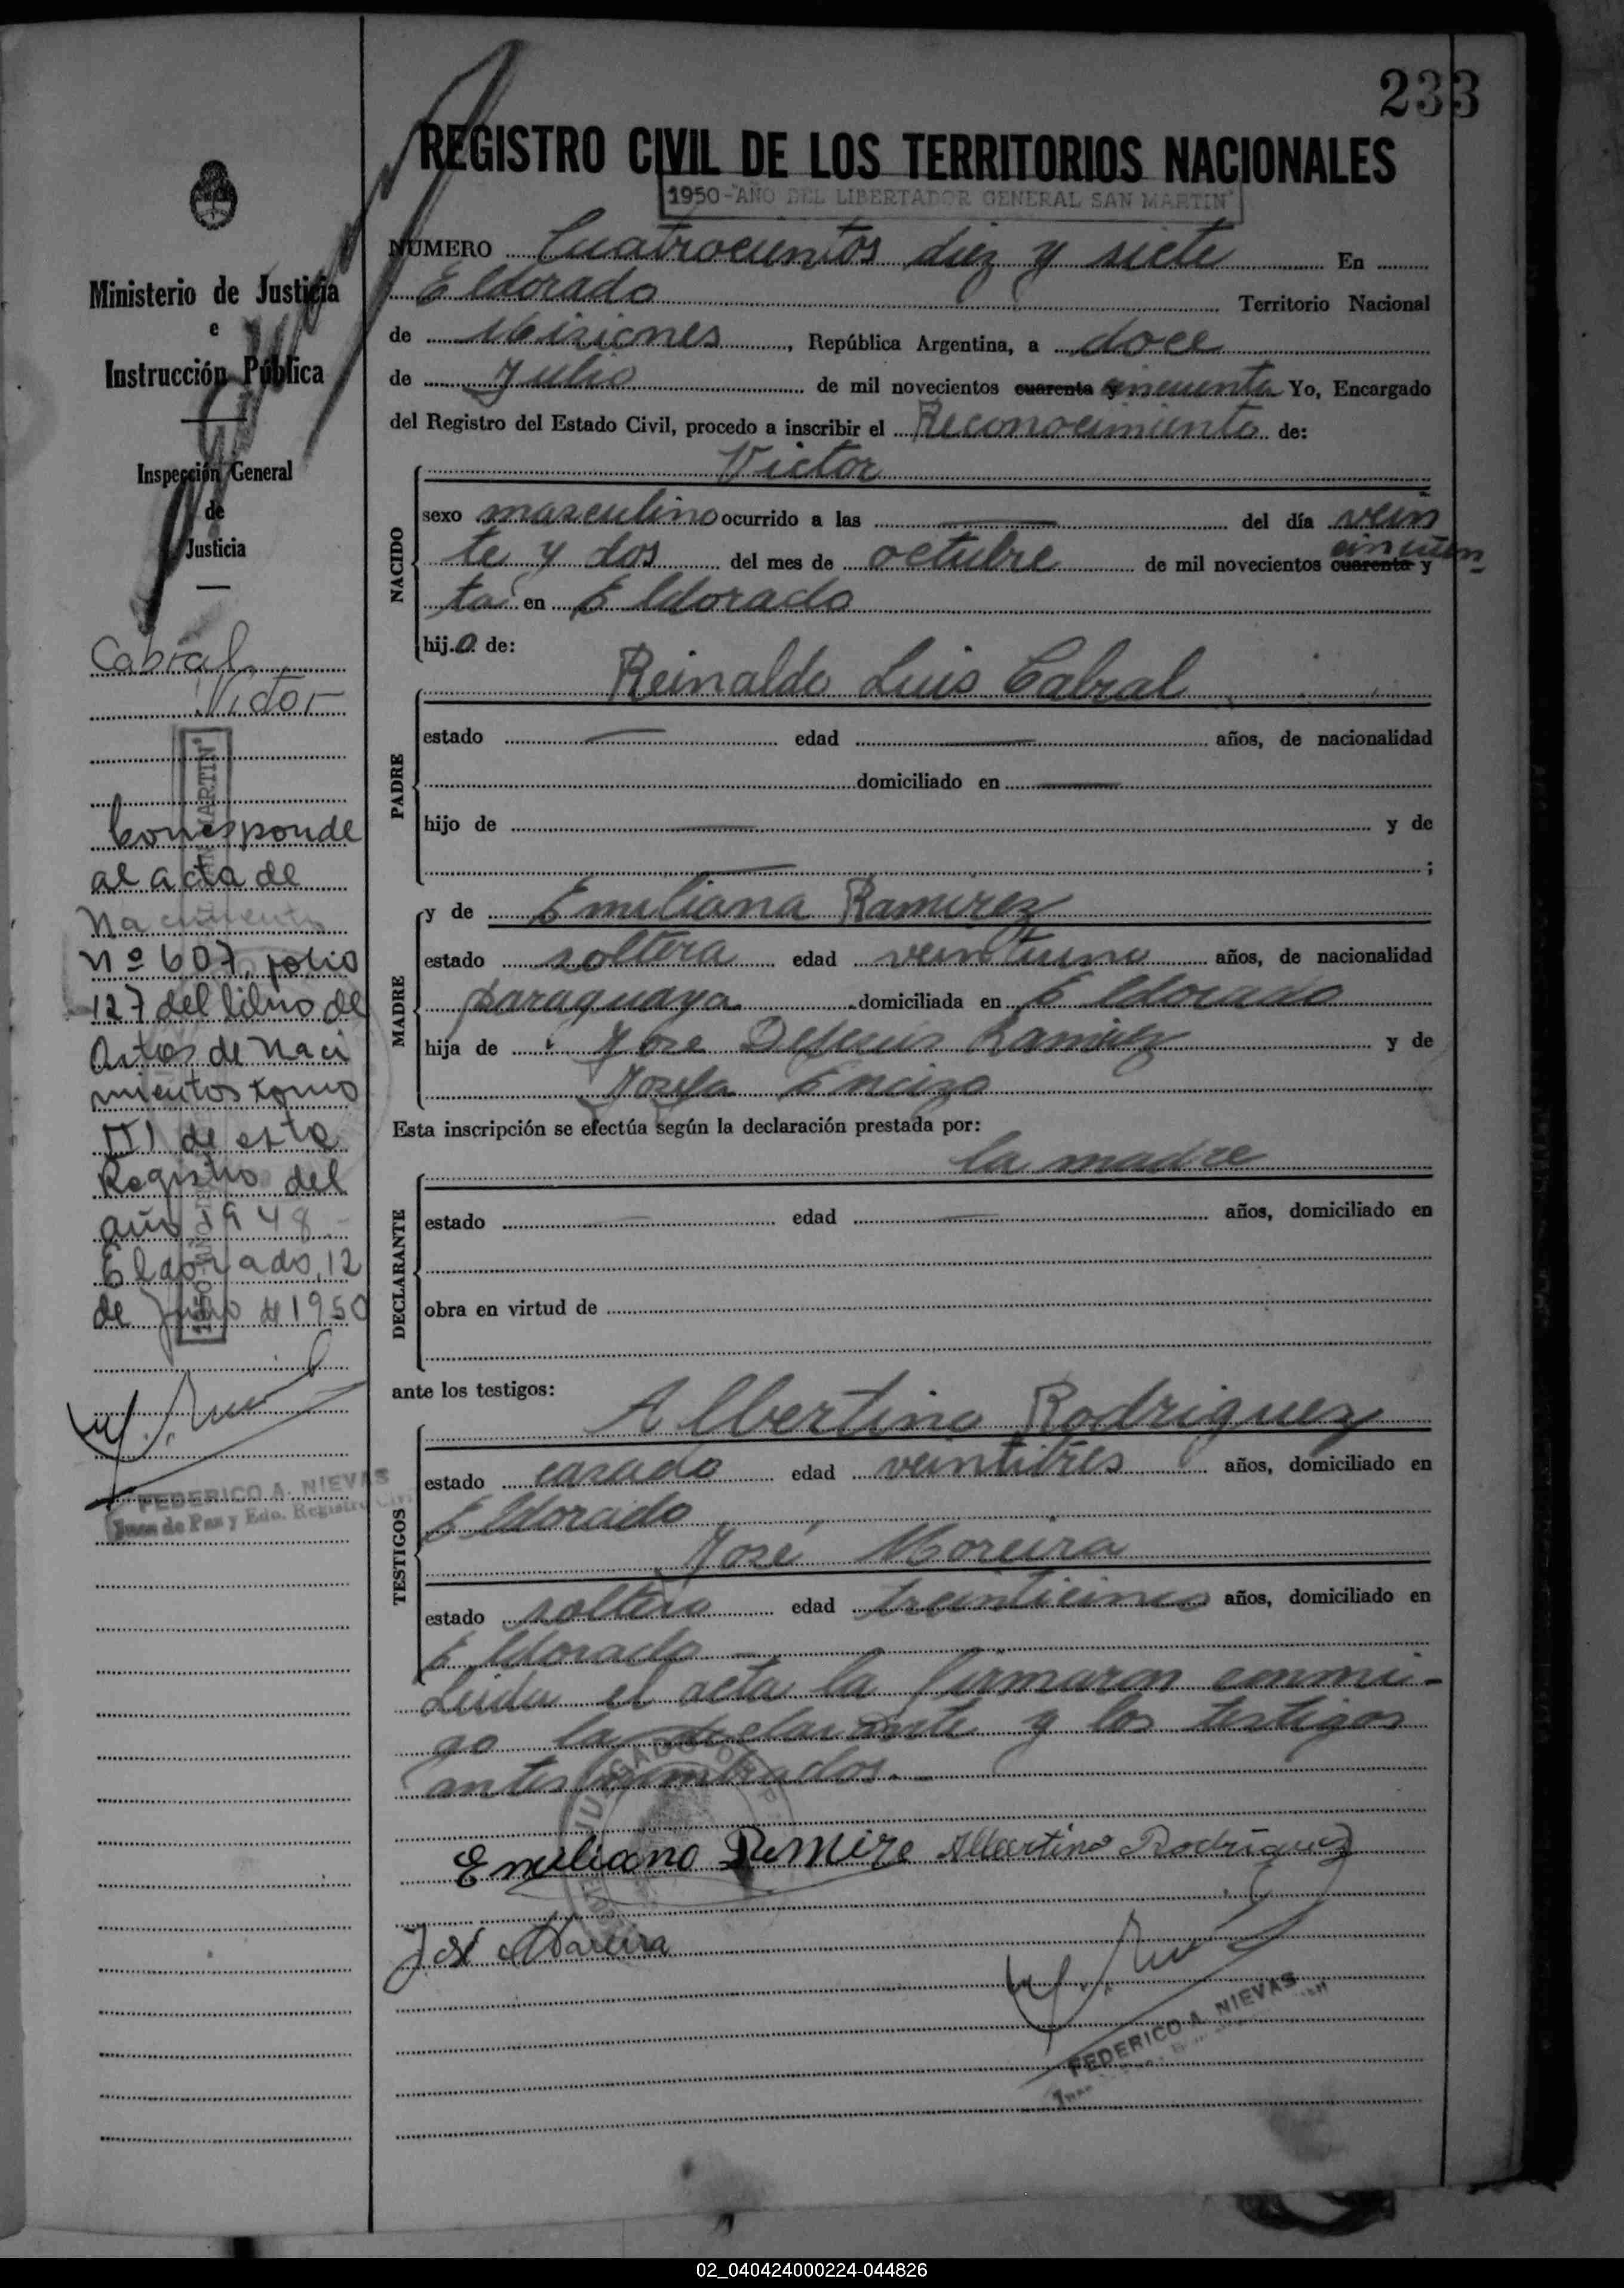 233
REGISTRO CIVIL DE LOS TERRITORIOS NACIONALES
1950-"AÑO DEL LIBERTADOR GENERAL SAN MARTIN"
Ministerio de Justicia
e
Instrucción Pública
Inspección General
de
Justicia
Cabral
Victor
Corresponde
al acta de
Nacimiento
Nº 607, folio
127 del libro de
Actas de Naci
mientos tomo
III de esta
Registro del
año 1948.-
Eldorado, 12
de Julio de 1950
FEDERICO A. NIEVAS
Juez de Paz y Edo. Registro Civil
NUMERO Cuatrocientos diez y siete En
Eldorado Territorio Nacional
de Misiones, República Argentina, a doce
de Julio de mil novecientos cuarenta y cincuenta Yo, Encargado
del Registro del Estado Civil, procedo a inscribir el Reconocimiento de:
Victor
NACIDO
sexo masculino ocurrido a las del día vein
te y dos del mes de octubre de mil novecientos cuarenta y cincuen
ta en Eldorado
hijo de:
Reinaldo Luis Cabral
PADRE
estado edad años, de nacionalidad
domiciliado en
hijo de y de
;
y de Emiliana Ramirez
MADRE
estado soltera edad veintiuno años, de nacionalidad
paraguaya domiciliada en Eldorado
hija de Jose Dejesus Ramirez y de
Josefa Enciso
Esta inscripción se efectúa según la declaración prestada por:
la madre
DECLARANTE
estado edad años, domiciliado en
obra en virtud de
ante los testigos:
Albertino Rodriguez
TESTIGOS
estado casado edad veintitres años, domiciliado en
Eldorado
José Moreira
estado soltero edad treinticinco años, domiciliado en
Eldorado
Leida el acta la firmaron conmi-
go la declarante y los testigos
antes nombrados.-
JUZGADO DE P
Emiliano Remire Albertino Rodriguez
José Moreira
FEDERICO A. NIEVAS
02_040424000224-044826